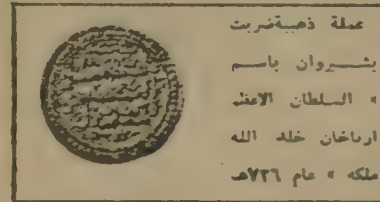 عملة ذهبية ضربت
بشروان باسم
« السلطان الاعظم
ارباخان خلد الله
ملكه » عام ٧٣٦هـ